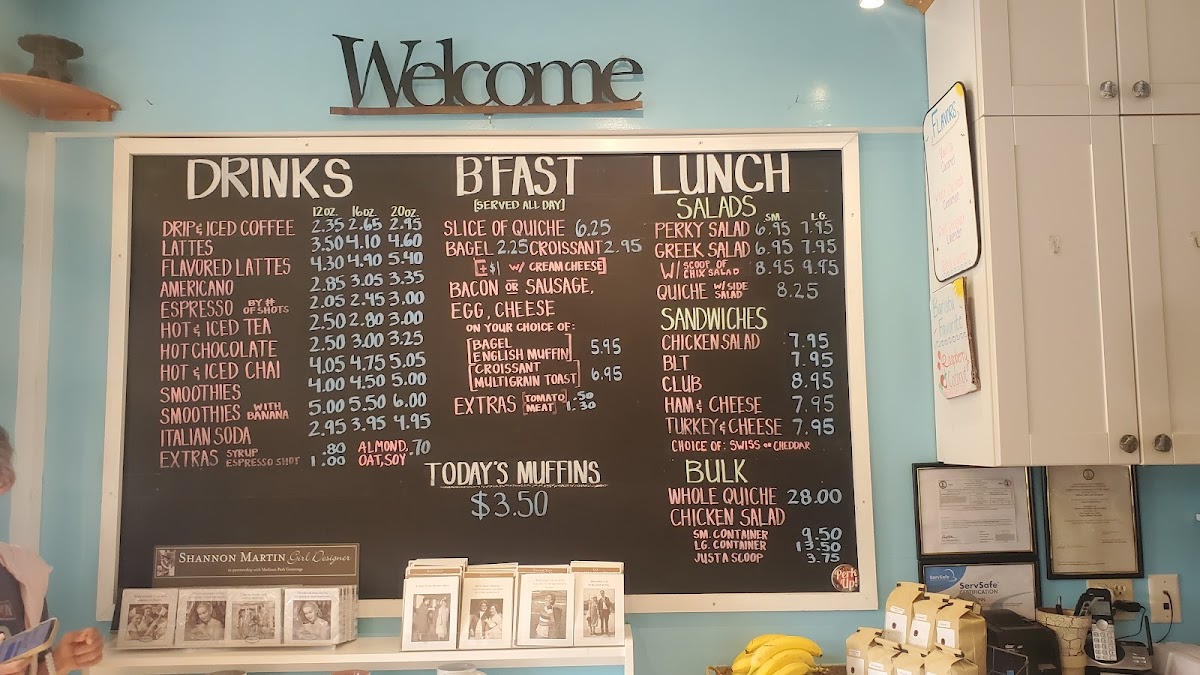 Welcome
DRINKS
12oz. 16oz. 20oz.
DRIP & ICED COFFEE 2.35 2.65 2.95
LATTES 3.50 4.10 4.60
FLAVORED LATTES 4.30 4.90 5.40
AMERICANO 2.85 3.05 3.35
ESPRESSO BY # OF SHOTS 2.05 2.45 3.00
HOT & ICED TEA 2.50 2.80 3.00
HOT CHOCOLATE 2.50 3.00 3.25
HOT & ICED CHAI 4.05 4.75 5.05
SMOOTHIES 4.00 4.50 5.00
SMOOTHIES WITH BANANA 5.00 5.50 6.00
ITALIAN SODA 2.95 3.95 4.95
EXTRAS SYRUP .80 ALMOND, .70
ESPRESSO SHOT 1.00 OAT, SOY
B'FAST
[SERVED ALL DAY]
SLICE OF QUICHE 6.25
BAGEL 2.25 CROISSANT 2.95
[+$1 W/ CREAM CHEESE]
BACON OR SAUSAGE,
EGG, CHEESE
ON YOUR CHOICE OF:
[BAGEL
ENGLISH MUFFIN] 5.95
[CROISSANT
MULTIGRAIN TOAST] 6.95
EXTRAS [TOMATO .50
MEAT] 1.30
TODAY'S MUFFINS
$3.50
LUNCH
SALADS SM. LG.
PERKY SALAD 6.95 7.95
GREEK SALAD 6.95 7.95
W/ SCOOP OF CHIX SALAD 8.95 9.95
QUICHE W/ SIDE SALAD 8.25
SANDWICHES
CHICKEN SALAD 7.95
BLT 7.95
CLUB 8.95
HAM & CHEESE 7.95
TURKEY & CHEESE 7.95
CHOICE OF: SWISS OR CHEDDAR
BULK
WHOLE QUICHE 28.00
CHICKEN SALAD
SM. CONTAINER 9.50
LG. CONTAINER 13.50
JUST A SCOOP 3.75
Perk Up!
SHANNON MARTIN Girl Designer
FLAVORS
Barista
Favorite
Raspberry
Coconut
ServSafe
CERTIFICATION